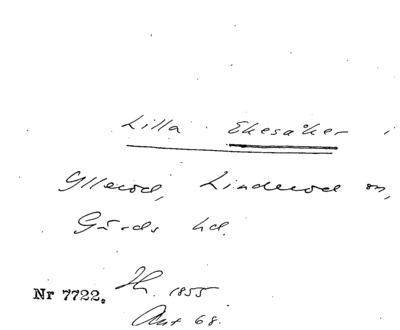 Lilla Ekesåker i
Yllerod, Linderod sn,
Gärds hd.
Nr 7722. Jh. 1855
Akt 68.